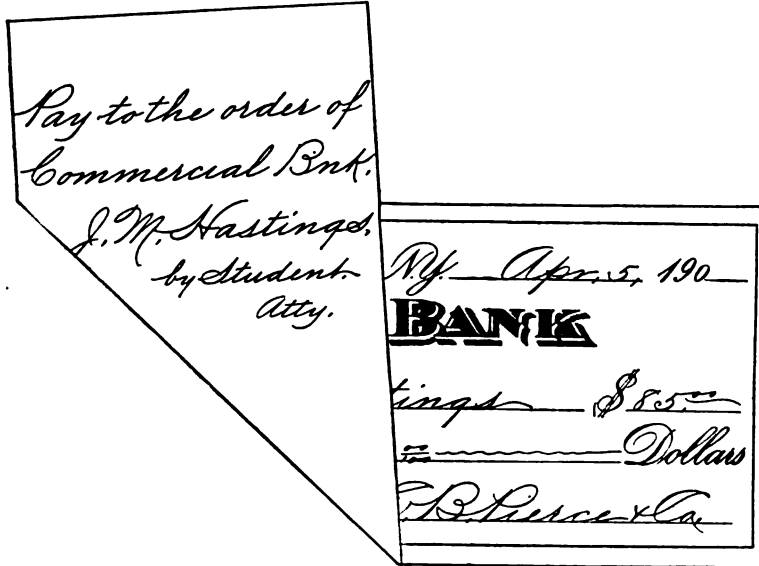 Pay to the order of
Commercial Bnk.
J. M. Hastings,
by Student
Atty.
N.Y. Apr. 5, 190
BANK
tings $85.00
00/100 Dollars
B. Pierce & Co.